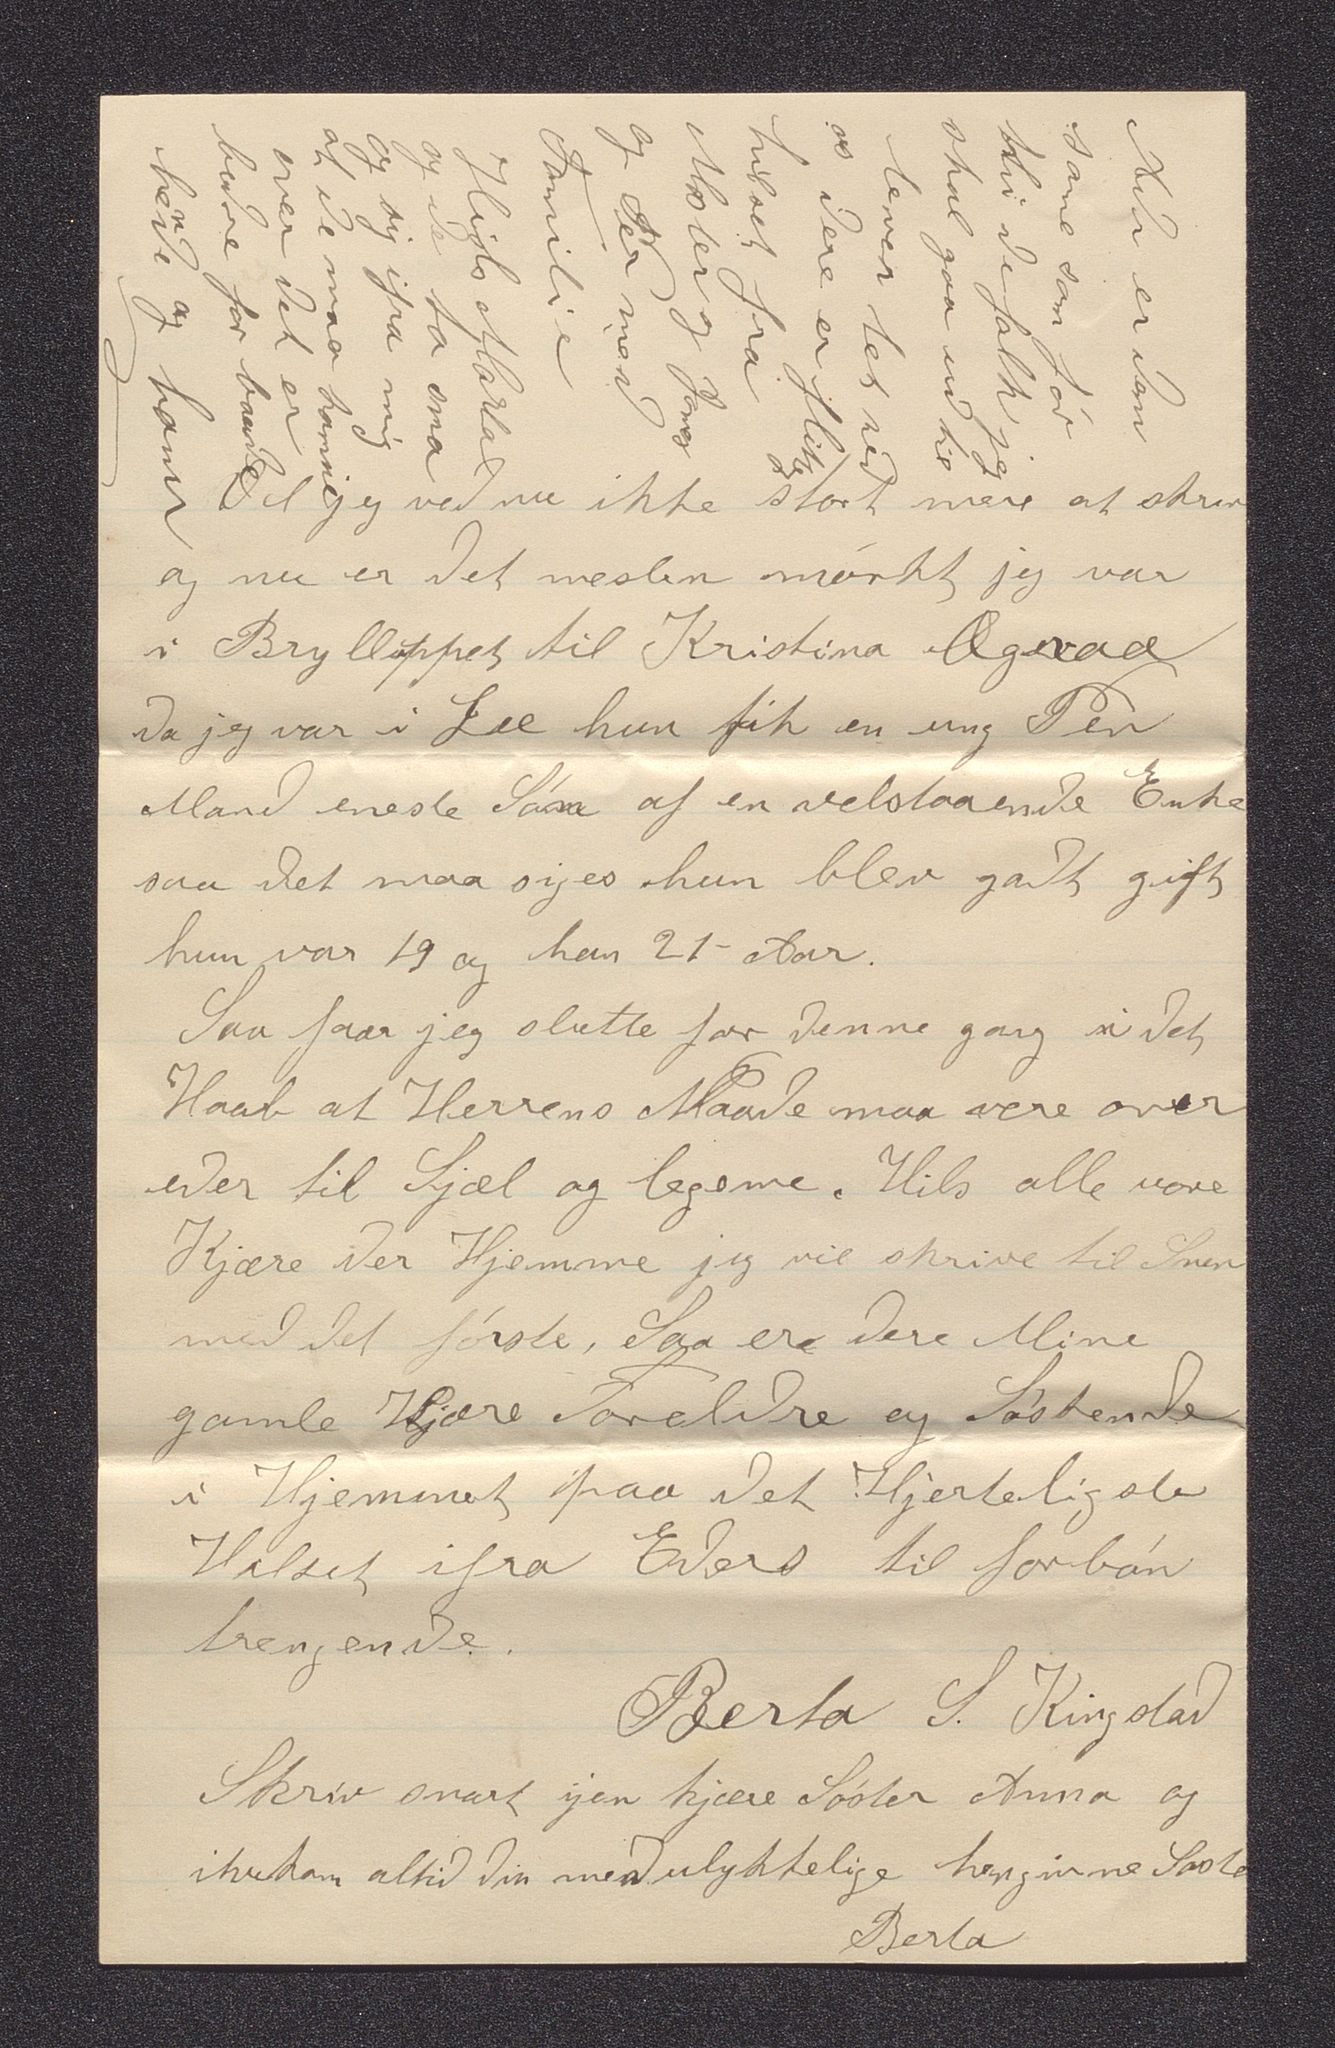 Her er den
same som før
thi de folk jeg
skal gaa ud til
lever tet ved
os dere er flitig
hilset fra
Moster og James
og Per med
Familie
Hils Marta
og de to sma
og sig ifra mig
at de maa
over det er
bedre for baade
hende og ham
Vel jeg ved nu ikke stort mere at skriv
og nu er det nesten mørkt jeg var
i Brylluppet til Kristina Ognaa
da jeg var i Lee hun fik en ung Pen
Mand eneste Søn af en velstaaende Enke
saa det maa siges hun blev godt gift
hun var 19 og han 21 Aar.
Saa faar jeg slutte for denne gang i det
Haab at Herrens Naade maa vere over
eder til Sjæl og legeme. Hils alle vore
Kjære der Hjemme jeg vil skrive til Sven
med det første, Saa ere dere Mine
gamle Kjære Foreldre og Søskende
i Hjemmet paa det Hjerteligste
Hilset ifra Eders til forbøn
trengende.
Berta S. Kingstad
Skriv snart ijen kjære Søster Anna og
ihukom altid din med ulyktelige hengivne Søste
Berta